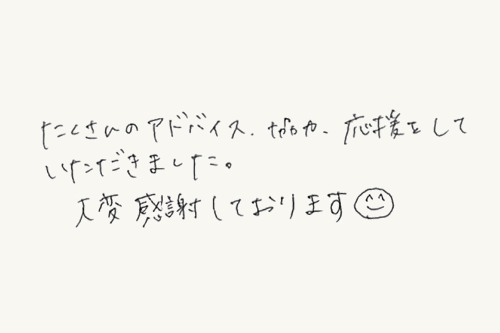 たくさんのアドバイス、応援をして
いただきました。
大変感謝しております